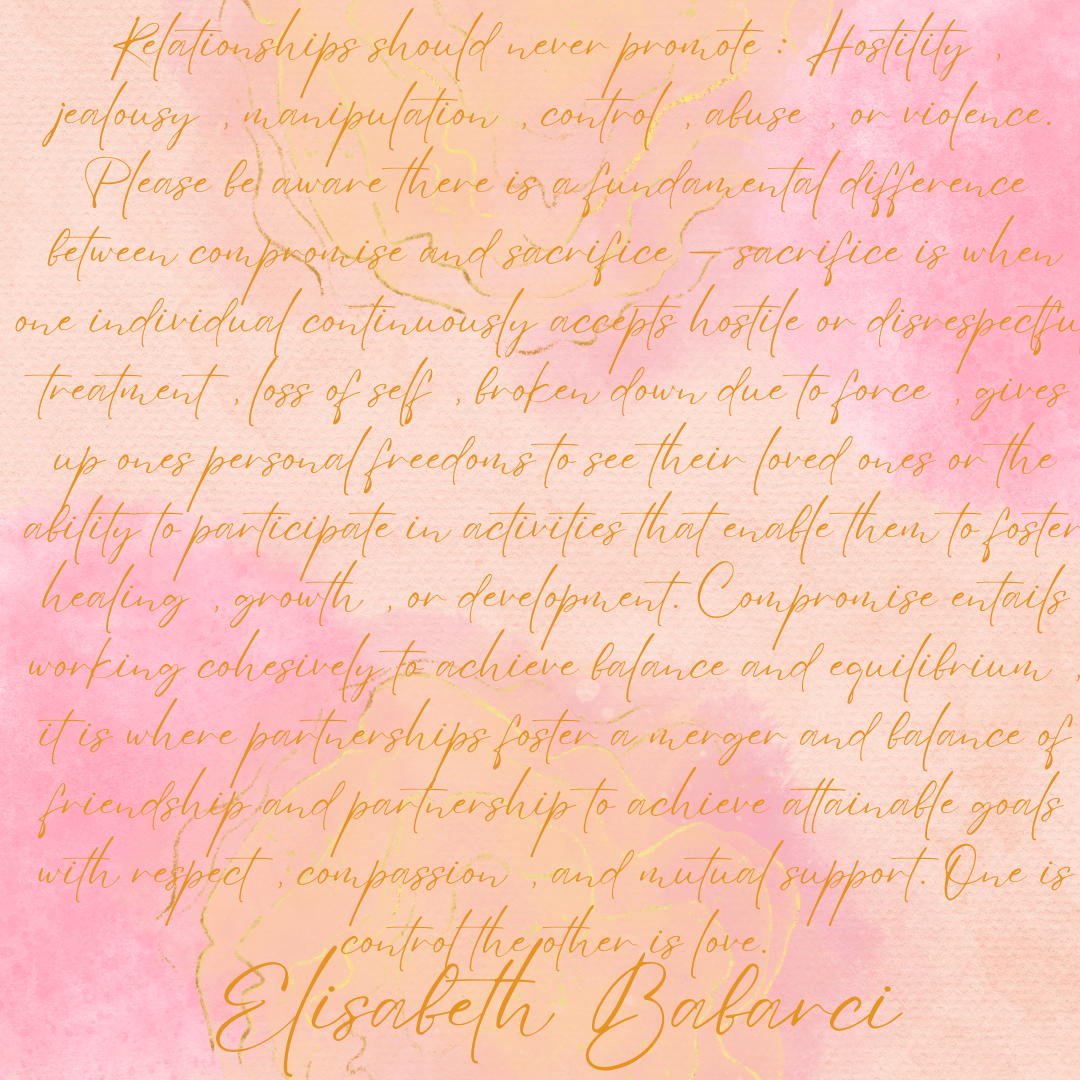 Relationships should never promote : Hostility ,
jealousy , manipulation , control , abuse , or violence.
Please be aware there is a fundamental difference
between compromise and sacrifice – sacrifice is when
one individual continuously accepts hostile or disrespectfu
treatment , loss of self , broken down due to force , gives
up ones personal freedoms to see their loved ones or the
ability to participate in activities that enable them to foster
healing , growth , or development. Compromise entails
working cohesively to achieve balance and equilibrium ,
it is where partnerships foster a merger and balance of
friendship and partnership to achieve attainable goals
with respect , compassion , and mutual support. One is
control the other is love.
Elisabeth Babarci